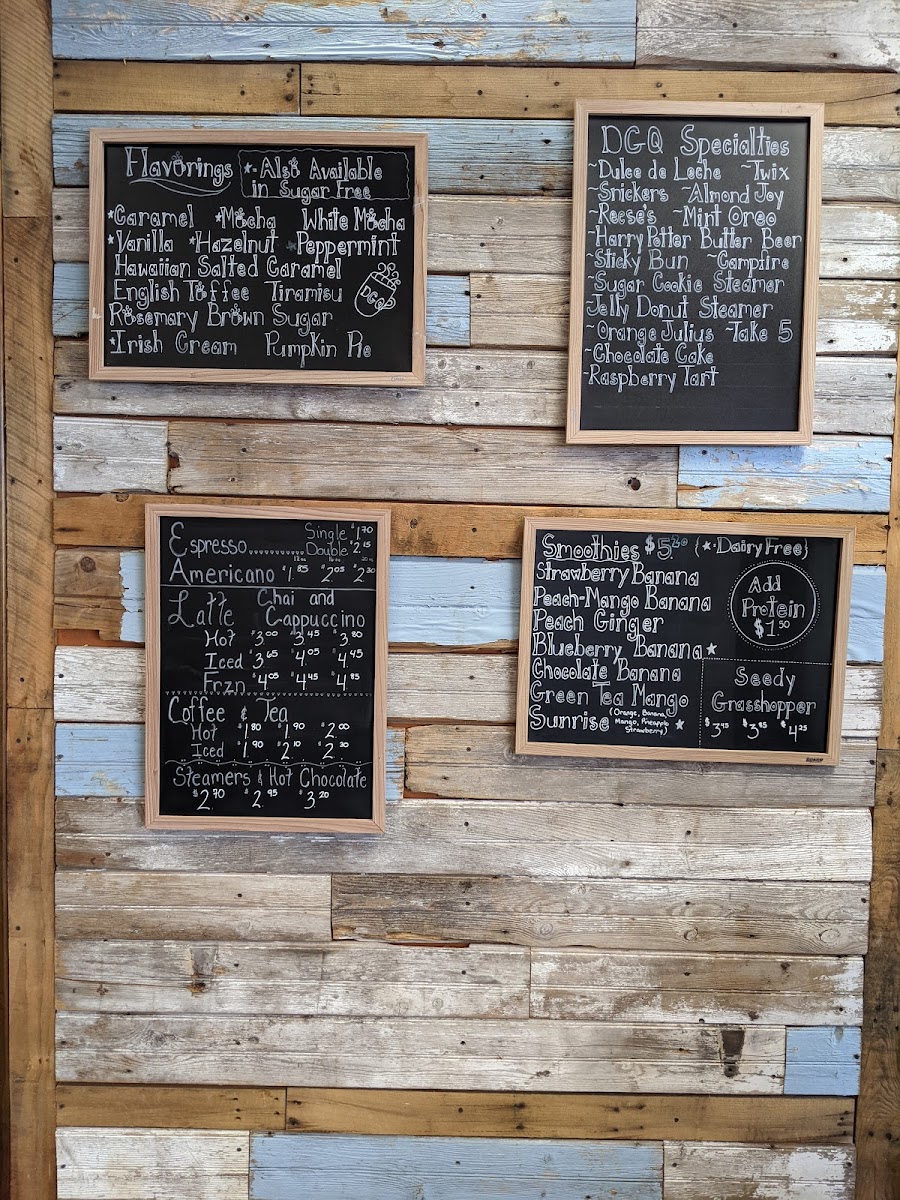 Flavorings
*-Also Available
in Sugar Free
*Caramel *Mocha White Mocha
*Vanilla *Hazelnut Peppermint
Hawaiian Salted Caramel
English Toffee Tiramisu
DGQ
Rosemary Brown Sugar
*Irish Cream Pumpkin Pie
DGQ Specialties
~Dulce de Leche ~Twix
~Snickers ~Almond Joy
~Reese's ~Mint Oreo
~Harry Potter Butter Beer
~Sticky Bun ~Campfire
~Sugar Cookie Steamer
Jelly Donut Steamer
~Orange Julius ~Take 5
~Chocolate Cake
~Raspberry Tart
Espresso........ Single $1.70
Double $2.15
Americano $1.85 $2.05 $2.30
Latte Chai and
Cappuccino
Hot $3.00 $3.45 $3.80
Iced $3.65 $4.05 $4.45
Frzn $4.05 $4.45 $4.85
Coffee & Tea
Hot $1.80 $1.90 $2.00
Iced $1.90 $2.10 $2.30
Steamers & Hot Chocolate
$2.70 $2.95 $3.20
Smoothies $5.20 (*-Dairy Free)
Strawberry Banana
Peach-Mango Banana
Peach Ginger
Blueberry Banana*
Chocolate Banana
Green Tea Mango
Sunrise (Orange, Banana, *
Mango, Pineapple
Strawberry)
Add
Protein
$1.50
Seedy
Grasshopper
$3.45 $3.95 $4.25